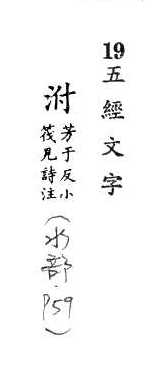 19五經文字
泭
芳于反小
筏見詩注
(水部·P59)